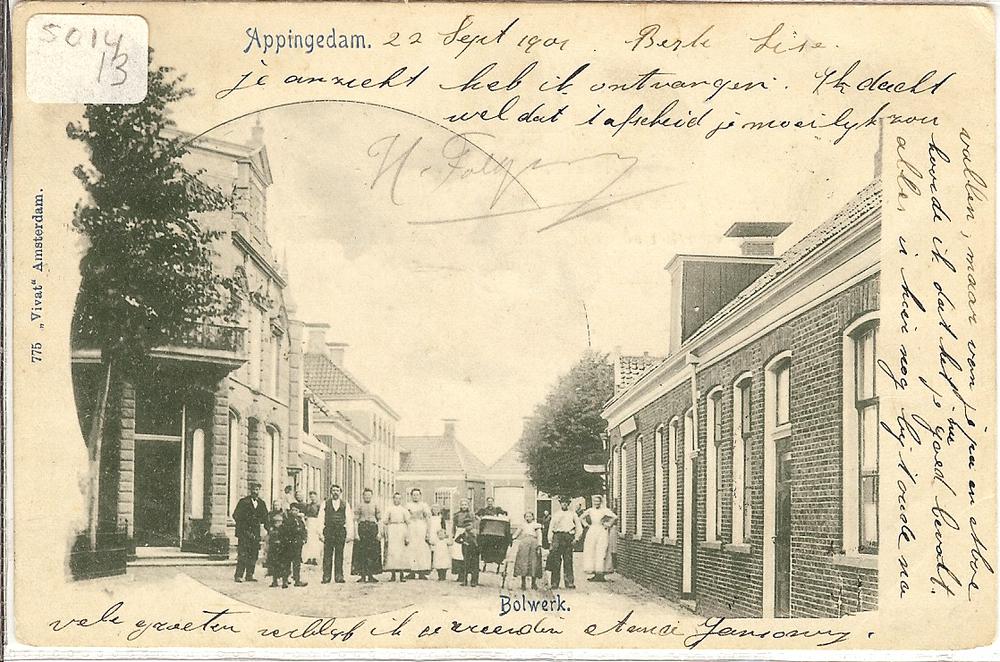 5014
13
Appingedam. 22 Sept 1901. Beste Lise.
je anzicht heb ik ontvangen. Ik dacht
wel dat 't afscheid je moeilijk zou
vallen, maar van je pa en
hoorde ik dat het je nu goed bevalt.
alles is hier nog bij 't oude
775 „Vivat“ Amsterdam.
Bolwerk.
vele groeten verblijf ik je vriendin Anna